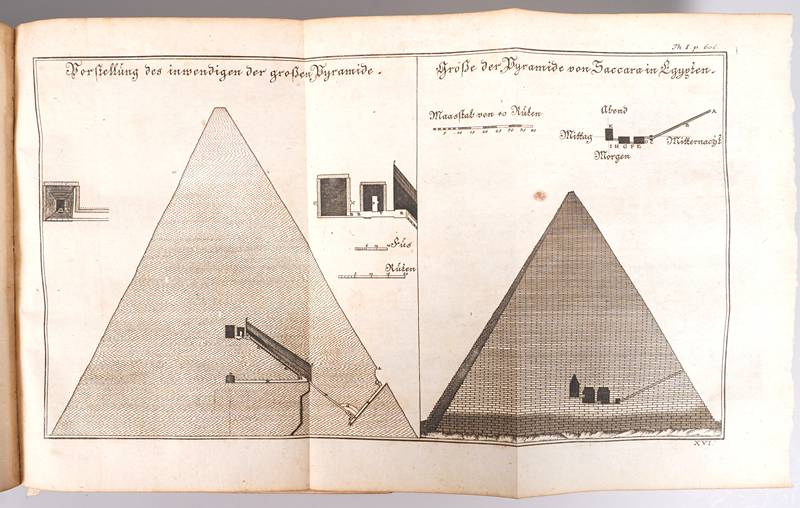 Th. I. p. 606.
Vorstellung des inwendigen der großen Pyramide.
Größe der Pyramide von Saccara in Egypten.
Maasstab von 40 Ruten
Abend
Mittag
Mitternacht
Morgen
A
Fus
Ruten
XVI.